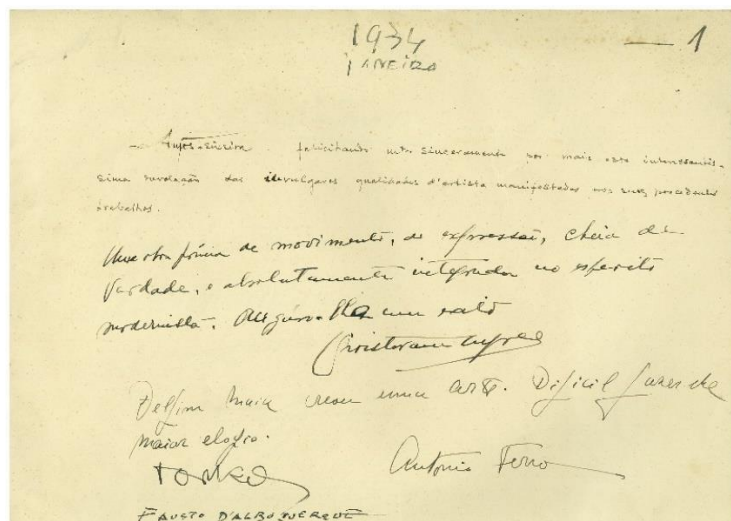 1934
JANEIRO
— 1
felicitando mto sinceramente por mais esta interessantis-
sima revelação das invulgares qualidades d'artista manifestadas nos seus precedentes
trabalhos.
Uma obra prima de movimento, de expressão, cheia de
Verdade, e absolutamente integrada no espirito
modernista. Auguro-lhe um exito
Delfim Maia creou uma arte. Dificil fazer-lhe
maior elogio.
Antonio Ferro
FAUSTO D'ALBUQUERQUE